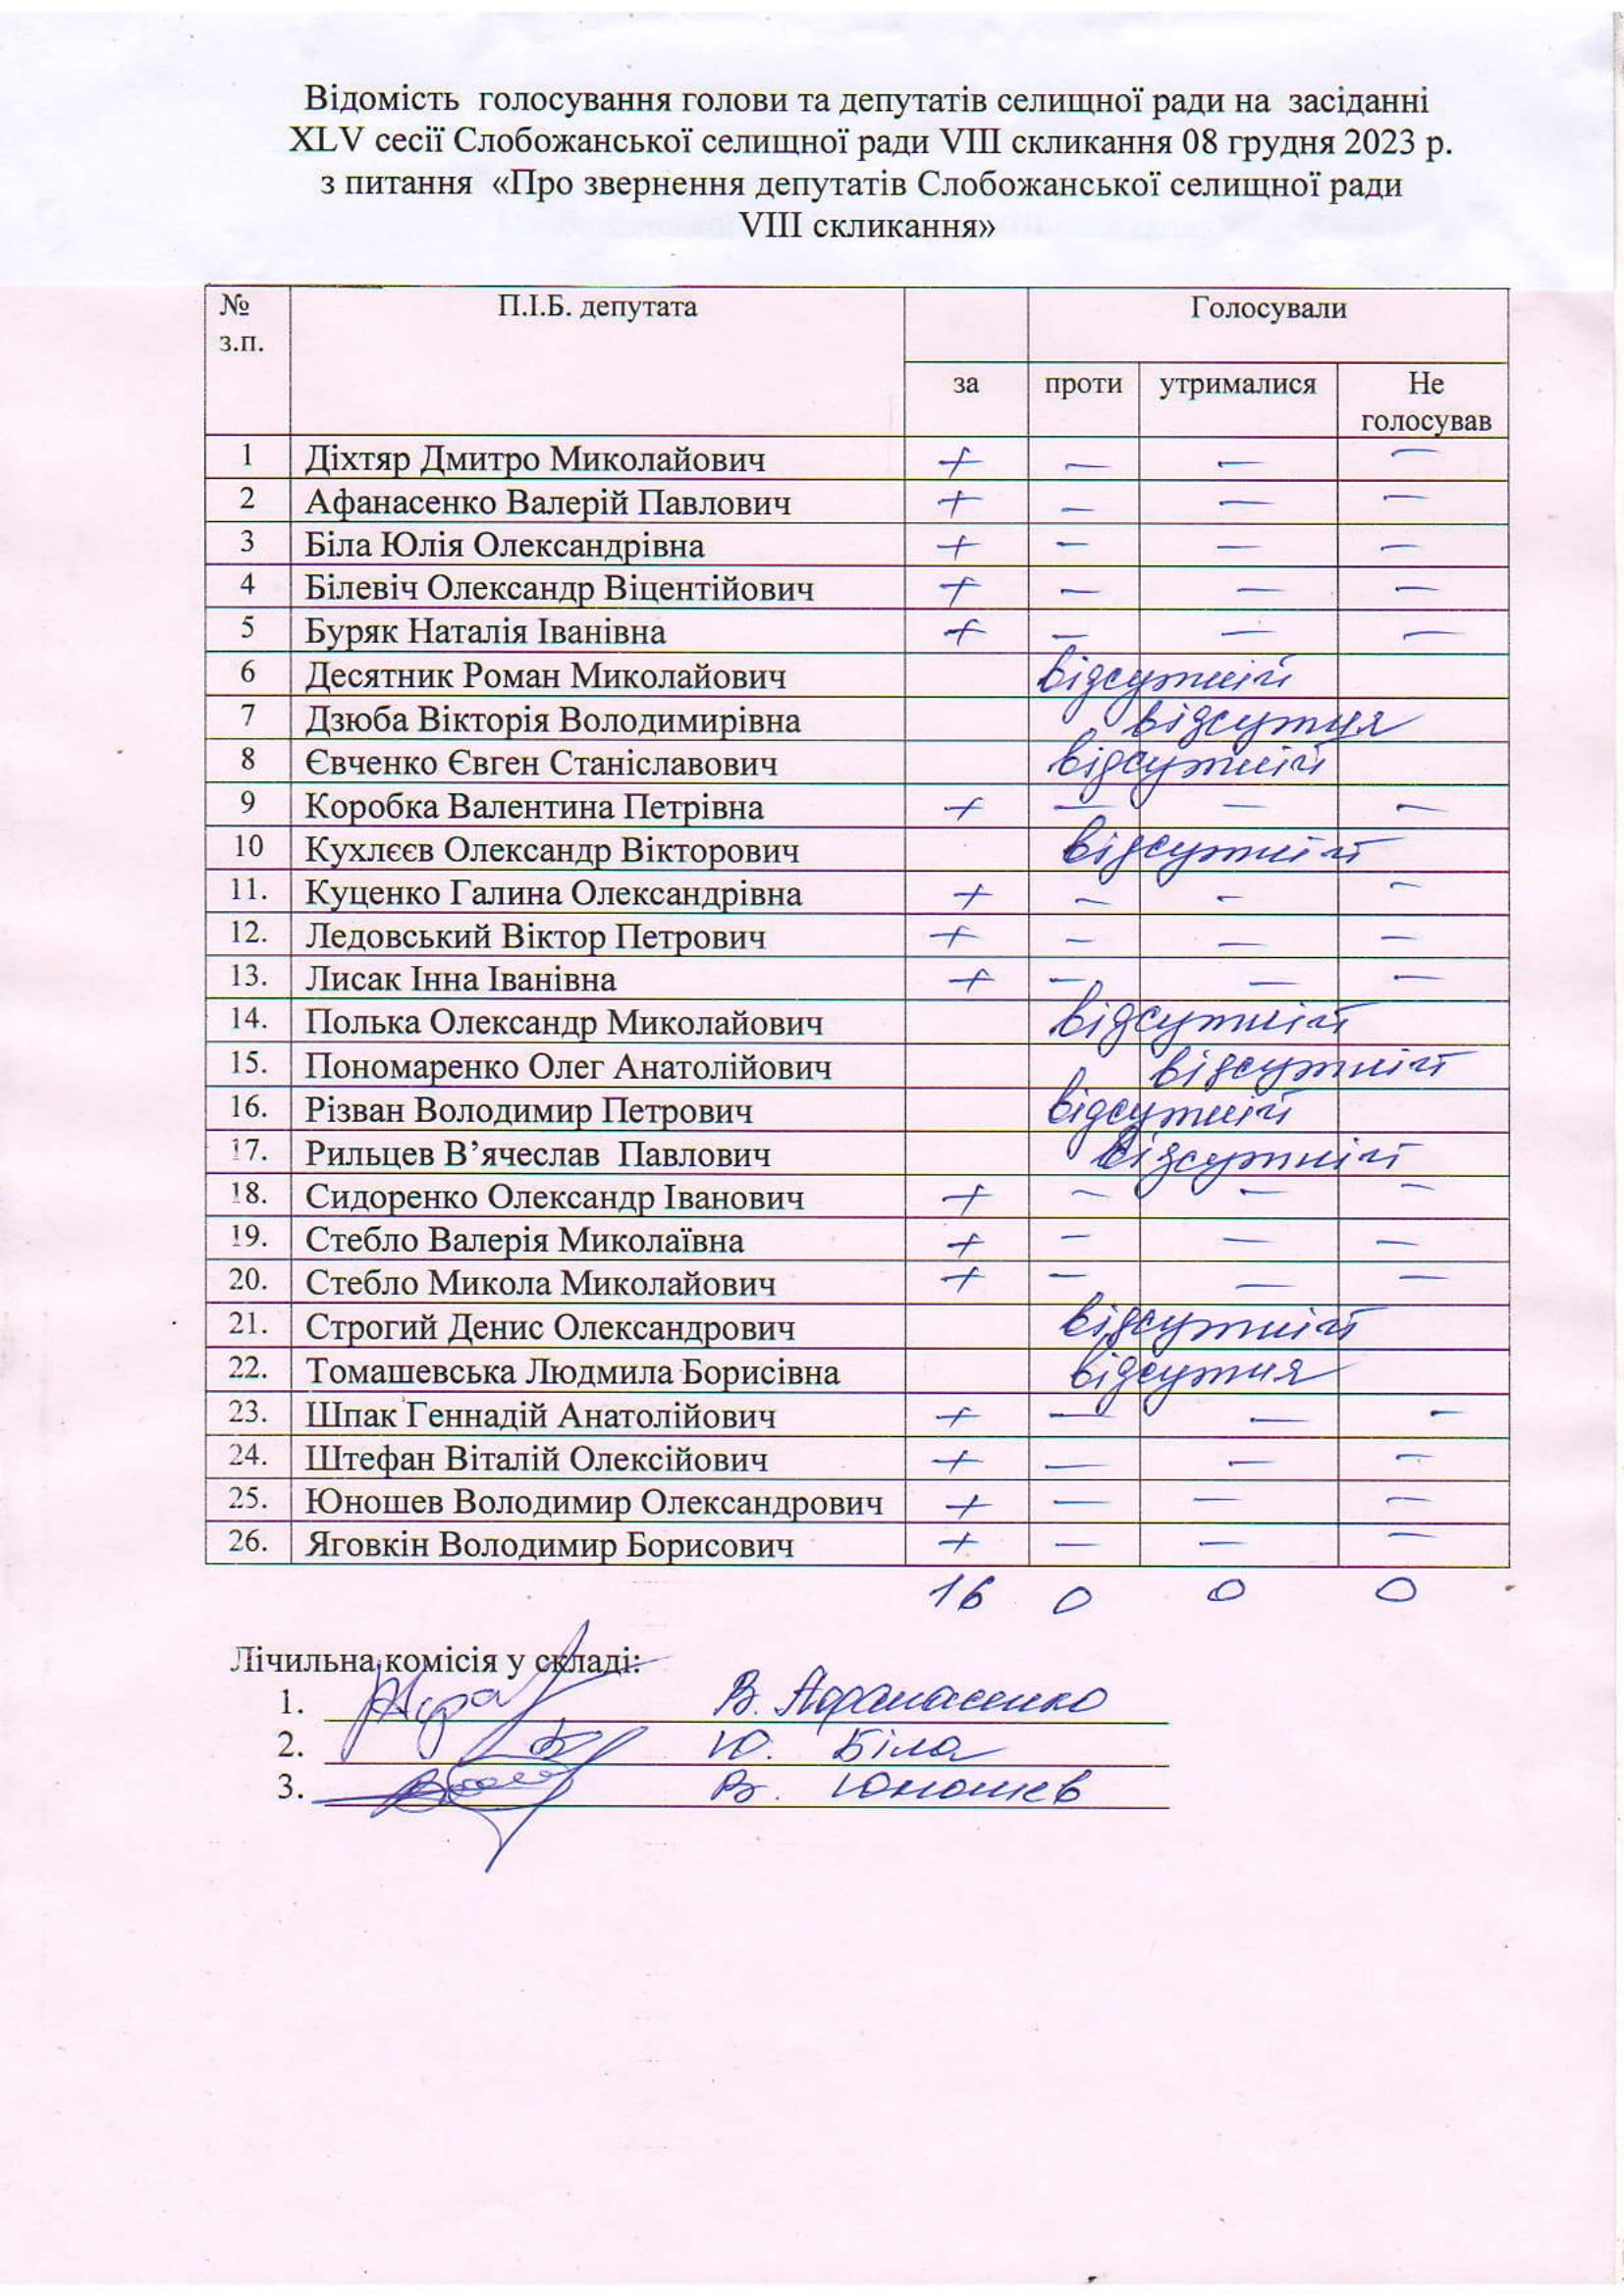 Відомість голосування голови та депутатів селищної ради на засіданні
XLV сесії Слобожанської селищної ради VIII скликання 08 грудня 2023 р.
з питання «Про звернення депутатів Слобожанської селищної ради
VIII скликання»
№ з.п. П.І.Б. депутата Голосували
за проти утрималися Не голосував
1 Діхтяр Дмитро Миколайович + — — —
2 Афанасенко Валерій Павлович + — — —
3 Біла Юлія Олександрівна + — — —
4 Білевіч Олександр Віцентійович + — — —
5 Буряк Наталія Іванівна + — — —
6 Десятник Роман Миколайович відсутній
7 Дзюба Вікторія Володимирівна відсутня
8 Євченко Євген Станіславович відсутній
9 Коробка Валентина Петрівна + — — —
10 Кухлєєв Олександр Вікторович відсутній
11. Куценко Галина Олександрівна + — — —
12. Ледовський Віктор Петрович + — — —
13. Лисак Інна Іванівна + — — —
14. Полька Олександр Миколайович відсутній
15. Пономаренко Олег Анатолійович відсутній
16. Різван Володимир Петрович відсутній
17. Рильцев В’ячеслав Павлович відсутній
18. Сидоренко Олександр Іванович + — — —
19. Стебло Валерія Миколаївна + — — —
20. Стебло Микола Миколайович + — — —
21. Строгий Денис Олександрович відсутній
22. Томашевська Людмила Борисівна відсутня
23. Шпак Геннадій Анатолійович + — — —
24. Штефан Віталій Олексійович + — — —
25. Юношев Володимир Олександрович + — — —
26. Яговкін Володимир Борисович + — — —
16 0 0 0
Лічильна комісія у складі:
1. В. Афанасенко
2. Ю. Біла
3. В. Юношев